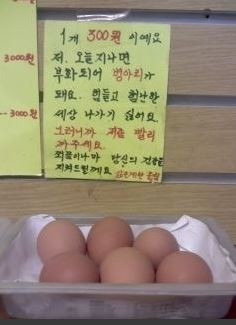 3000원
--- 3000원
1개 300원 이예요
저. 오늘지나면
부화되어 병아리가
돼요. 힘들고 험난한
세상 나가기 싫어요.
그러니까 지금 빨리
까주세요.
쪼꼼이나마 당신의 건강을
지켜드릴께요